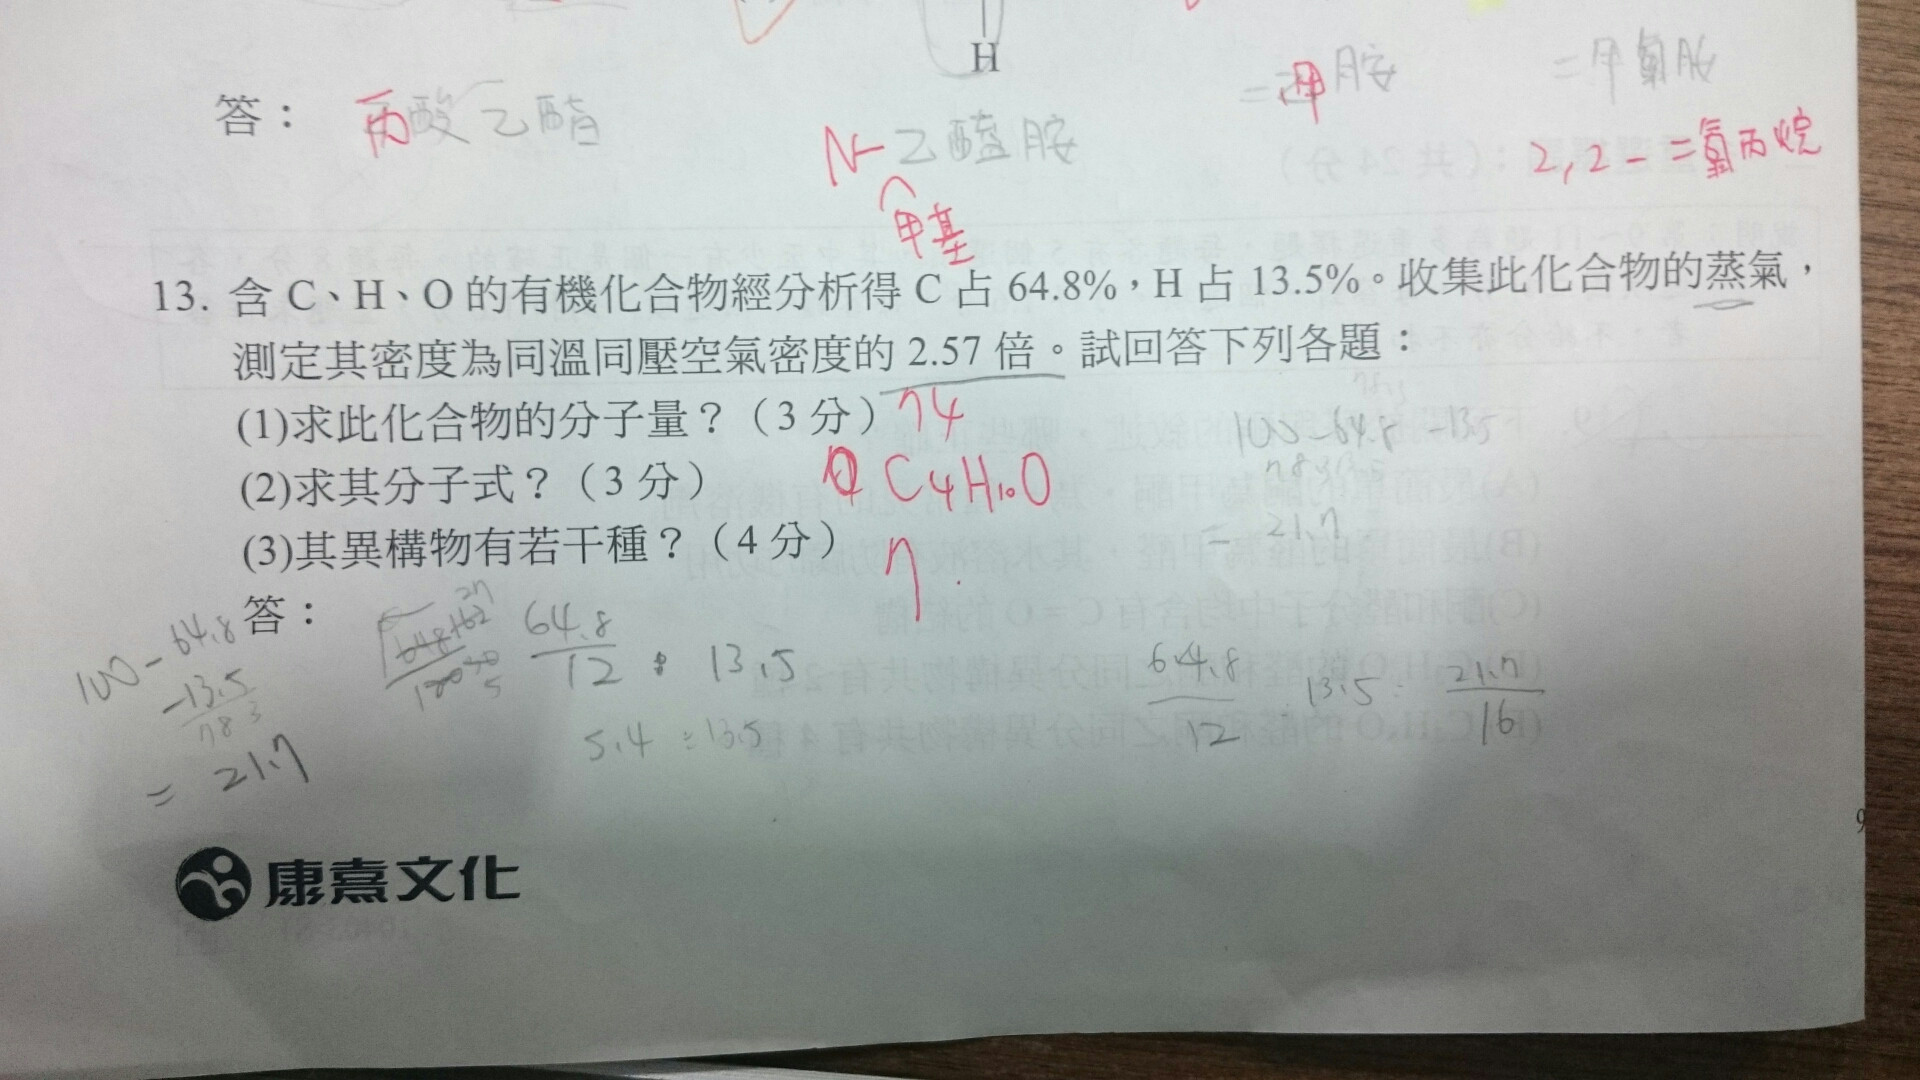 H
答： 丙酸乙酯
N-乙醯胺
甲基
=甲胺
=甲氯胺
2,2-二氯丙烷
13. 含 C、H、O 的有機化合物經分析得 C 占 64.8%，H 占 13.5%。收集此化合物的蒸氣，
測定其密度為同溫同壓空氣密度的 2.57 倍。試回答下列各題：
(1)求此化合物的分子量？（3 分） 74
(2)求其分子式？（3 分） C4H10O
(3)其異構物有若干種？（4 分） 7
100-64.8-13.5
= 21.7
答：
100-64.8
-13.5
= 21.7
64.8
12 : 13.5
5.4 : 13.5
64.8 : 13.5 : 21.7
12 16
康熹文化
9